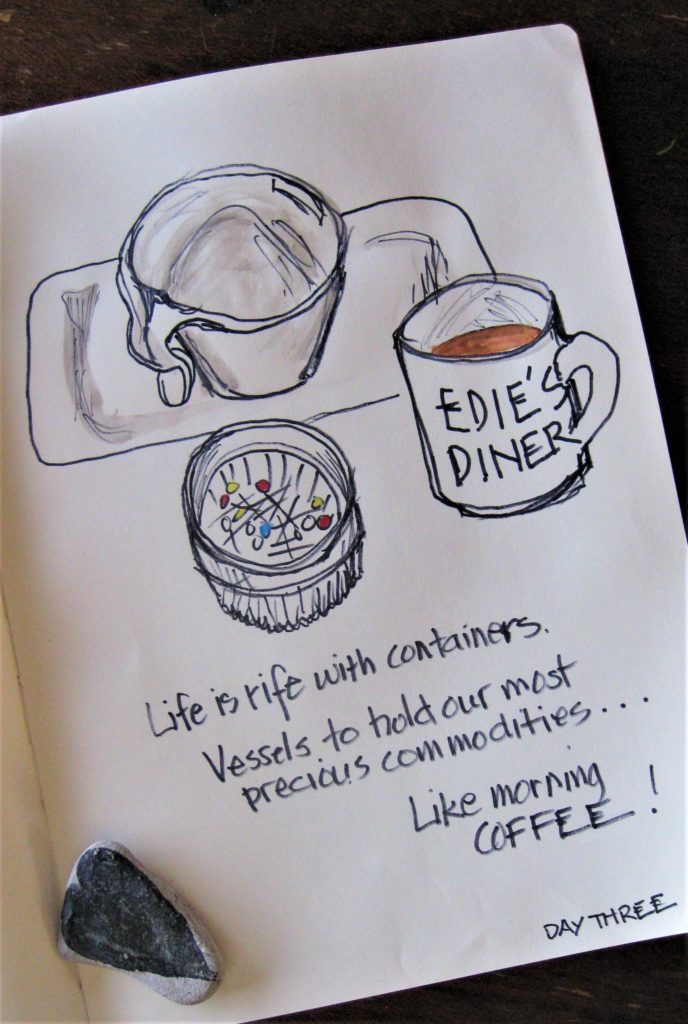 EDIE'S
DINER
Life is rife with containers.
Vessels to hold our most
precious commodities....
Like morning
COFFEE!
DAY THREE